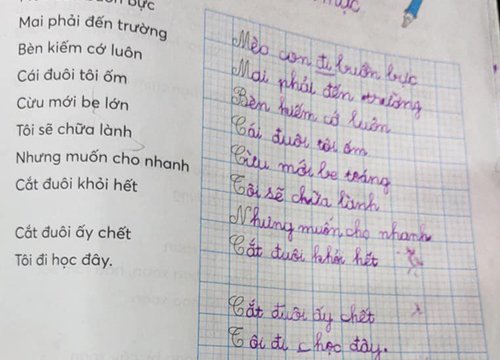 Mai phải đến trường
Bèn kiếm cớ luôn
Cái đuôi tôi ốm
Cừu mới bẹ lớn
Tôi sẽ chữa lành
Nhưng muốn cho nhanh
Cắt đuôi khỏi hết
Cắt đuôi ấy chết
Tôi đi học đây.
Mèo con đi buồn bực
Mai phải đến trường
Bèn kiếm cớ luôn
Cái đuôi tôi ốm
Cừu mới be toáng
Tôi sẽ chữa lành
Nhưng muốn cho nhanh
Cắt đuôi khỏi hết
Cắt đuôi ấy chết
Tôi đi học đây.